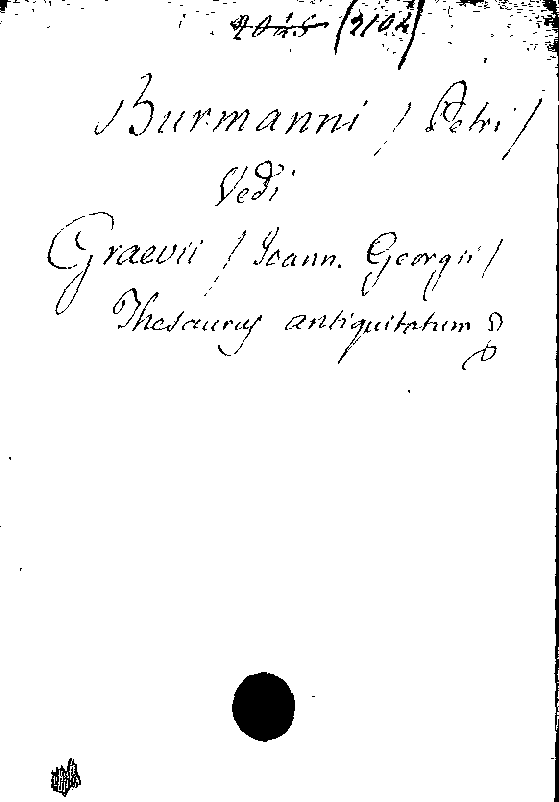 (2102
Burmanni / Petri /
Vedi
Graevii / Ioann. Georgii /
Thesaurus antiquitatum